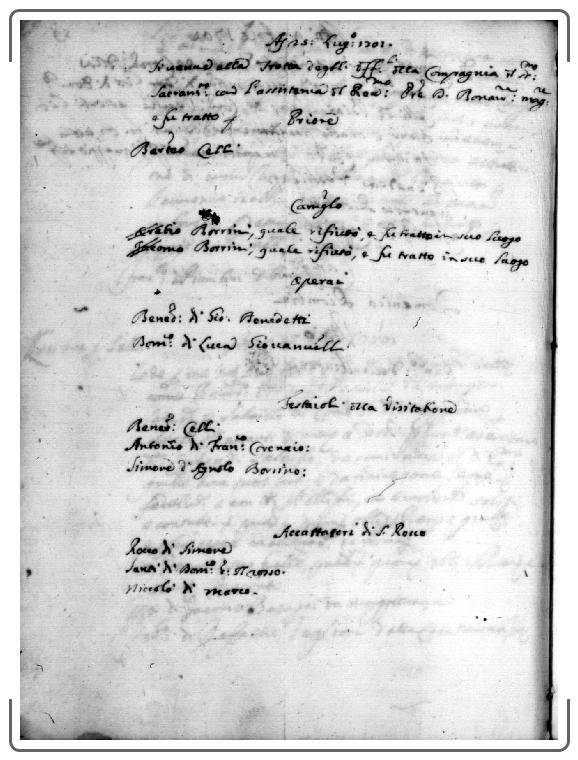 A dì 25: Lug.o 1701.
Si venne alla Tratta degli Off.li della Compagnia del SS.mo
Sacram.to con l'assistenza del Rev.mo: Pre D. Bonav.ra:
e fu tratto Priore
Barteo Celli
Camar.lo
Oratio Borrini, quale rifiutò, e fu tratto in suo luogo
Giacomo Borrini, quale rifiutò, e fu tratto in suo luogo
Operai
Bened.o: di Gio. Benedetti
Dom.o: di Luca Giovanelli
Festaioli della Visitatione
Bened.o: Celli
Antonio di Fran.o
Simone d'Agnolo
Accattatori di S. Rocco
Rocco di Simone
Santi di Dom.o
Niccolò di Marco.